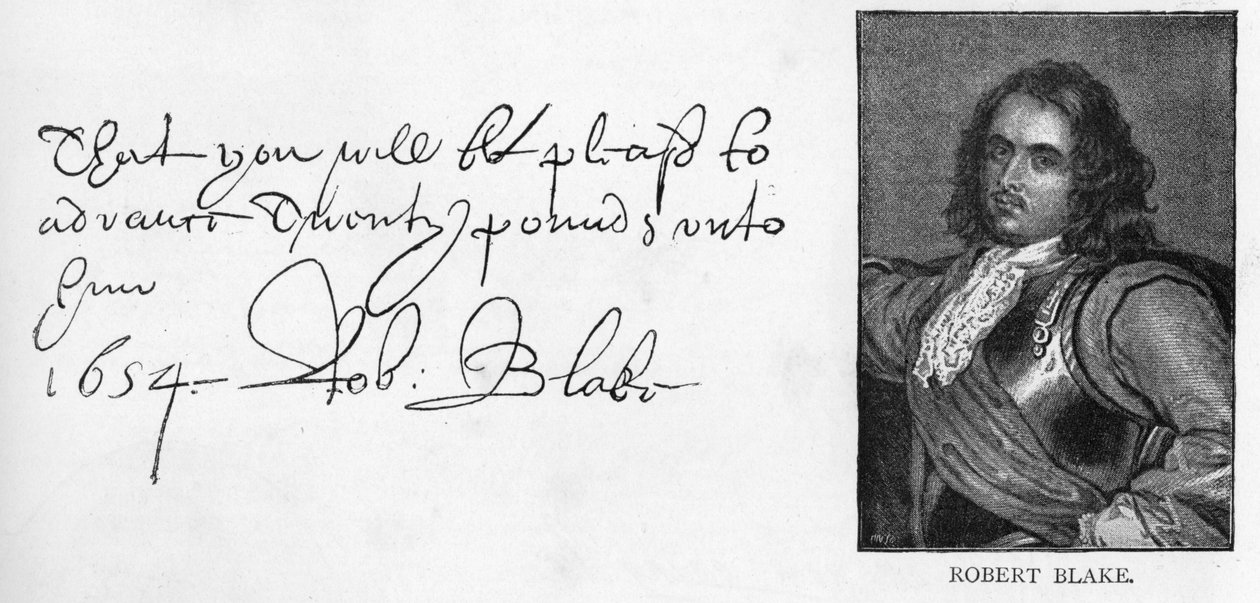 That you will be pleased to
advance Twenty pounds unto
him
1654 Rob: Blake
ROBERT BLAKE.